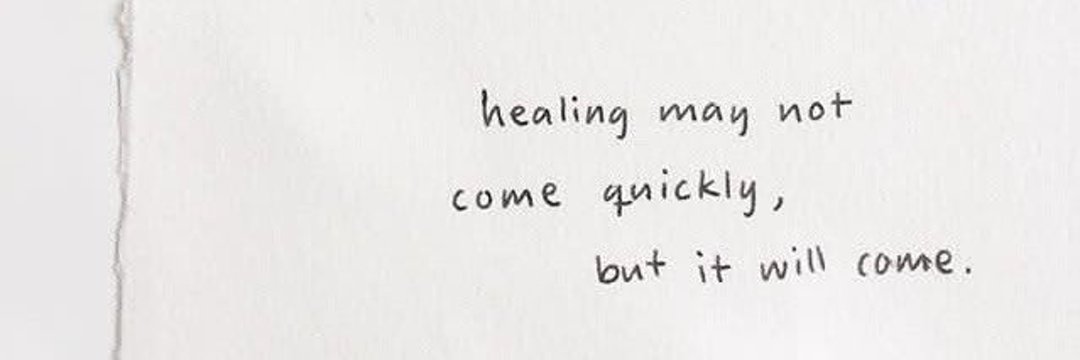 healing may not
come quickly,
but it will come.